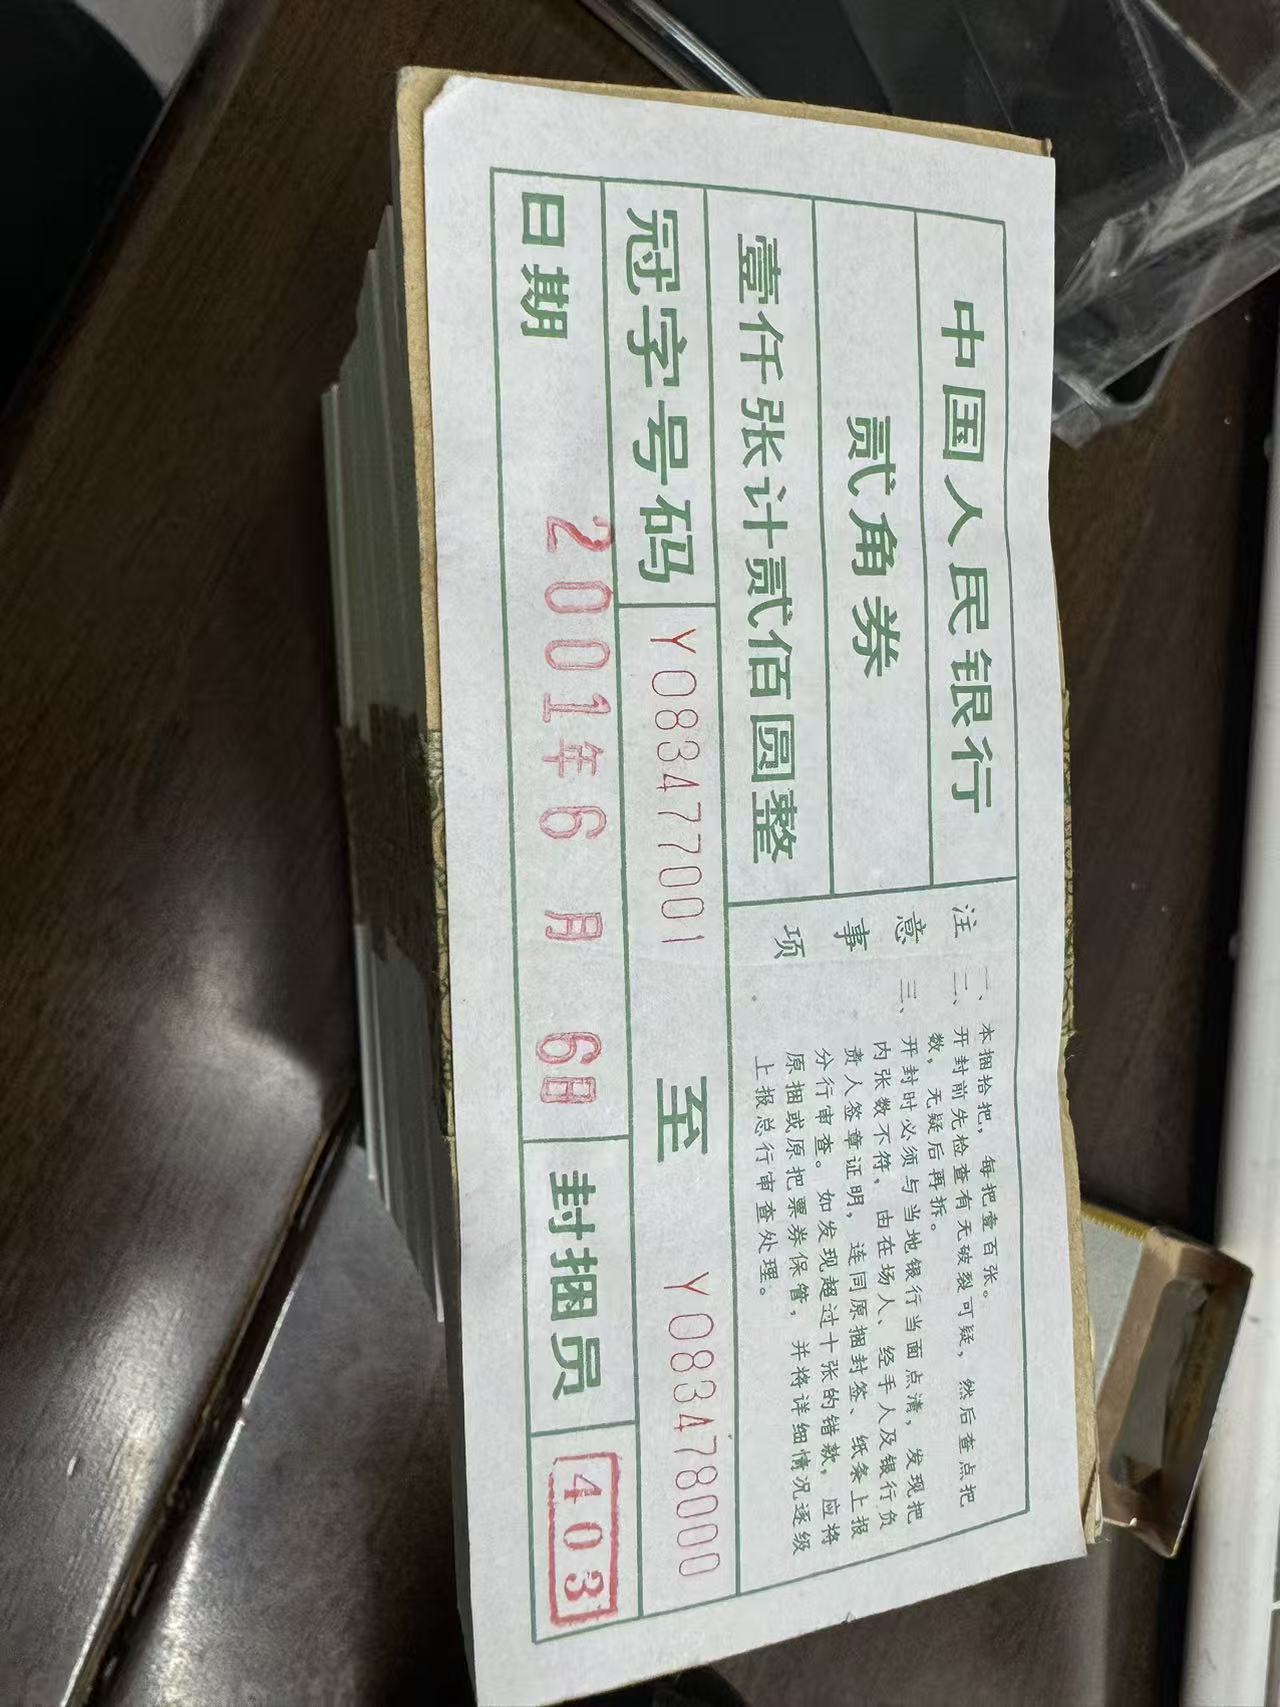 中国人民银行
贰角券
壹仟张计贰佰圆整
注意事项
一、本捆拾把，每把壹百张。
二、开封前先检查有无破裂可疑，然后查点把
数，无疑后再拆。
三、开封时必须与当地银行当面点清，发现把
内张数不符，由在场人、经手人及银行负
责人签章证明，连同原捆封签、纸条上报
分行审查。如发现超过十张的错款，应将
原捆或原把票券保管，并将详细情况逐级
上报总行审查处理。
冠字号码 Y083477001 至 Y083478000
日期 2001年6月6日 封捆员 403